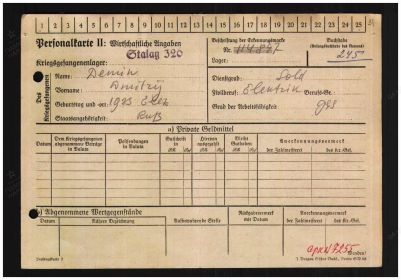 1 2 3 4 5 6 7 8 9 10 11 12 13 14 15 16 17 18 19 20 21 22 23 24 25
Personalkarte II: Wirtschaftliche Angaben
Stalag 326
Beschriftung der Erkennungsmarke
Nr. 114837
Lager:
245
Kriegsgefangenenlager:
Des Kriegsgefangenen
Name: Demin
Vorname: Dmitrij
Geburtstag und -ort: 1923
Staatsangehörigkeit: Ruß
Dienstgrad: Sold
Zivilberuf: Elentrik Berufs-Gr.
Grad der Arbeitsfähigkeit: ges
a) Private Geldmittel
Datum
Dem Kriegsgefangenen abgenommene Beträge in Valuta
Postsendungen in Valuta
Gutschrift in
Hiervon ausgezahlt
Bleibt Guthaben
Anerkennungsvermerk
der Zahlmeisterei
des Kr.-Gef.
b) Abgenommene Wertgegenstände
Datum
Nähere Bezeichnung
Aufbewahrende Stelle
Rückgabevermerk mit Datum
Anerkennungsvermerk
der Zahlmeisterei
des Kr.-Gef.
7255